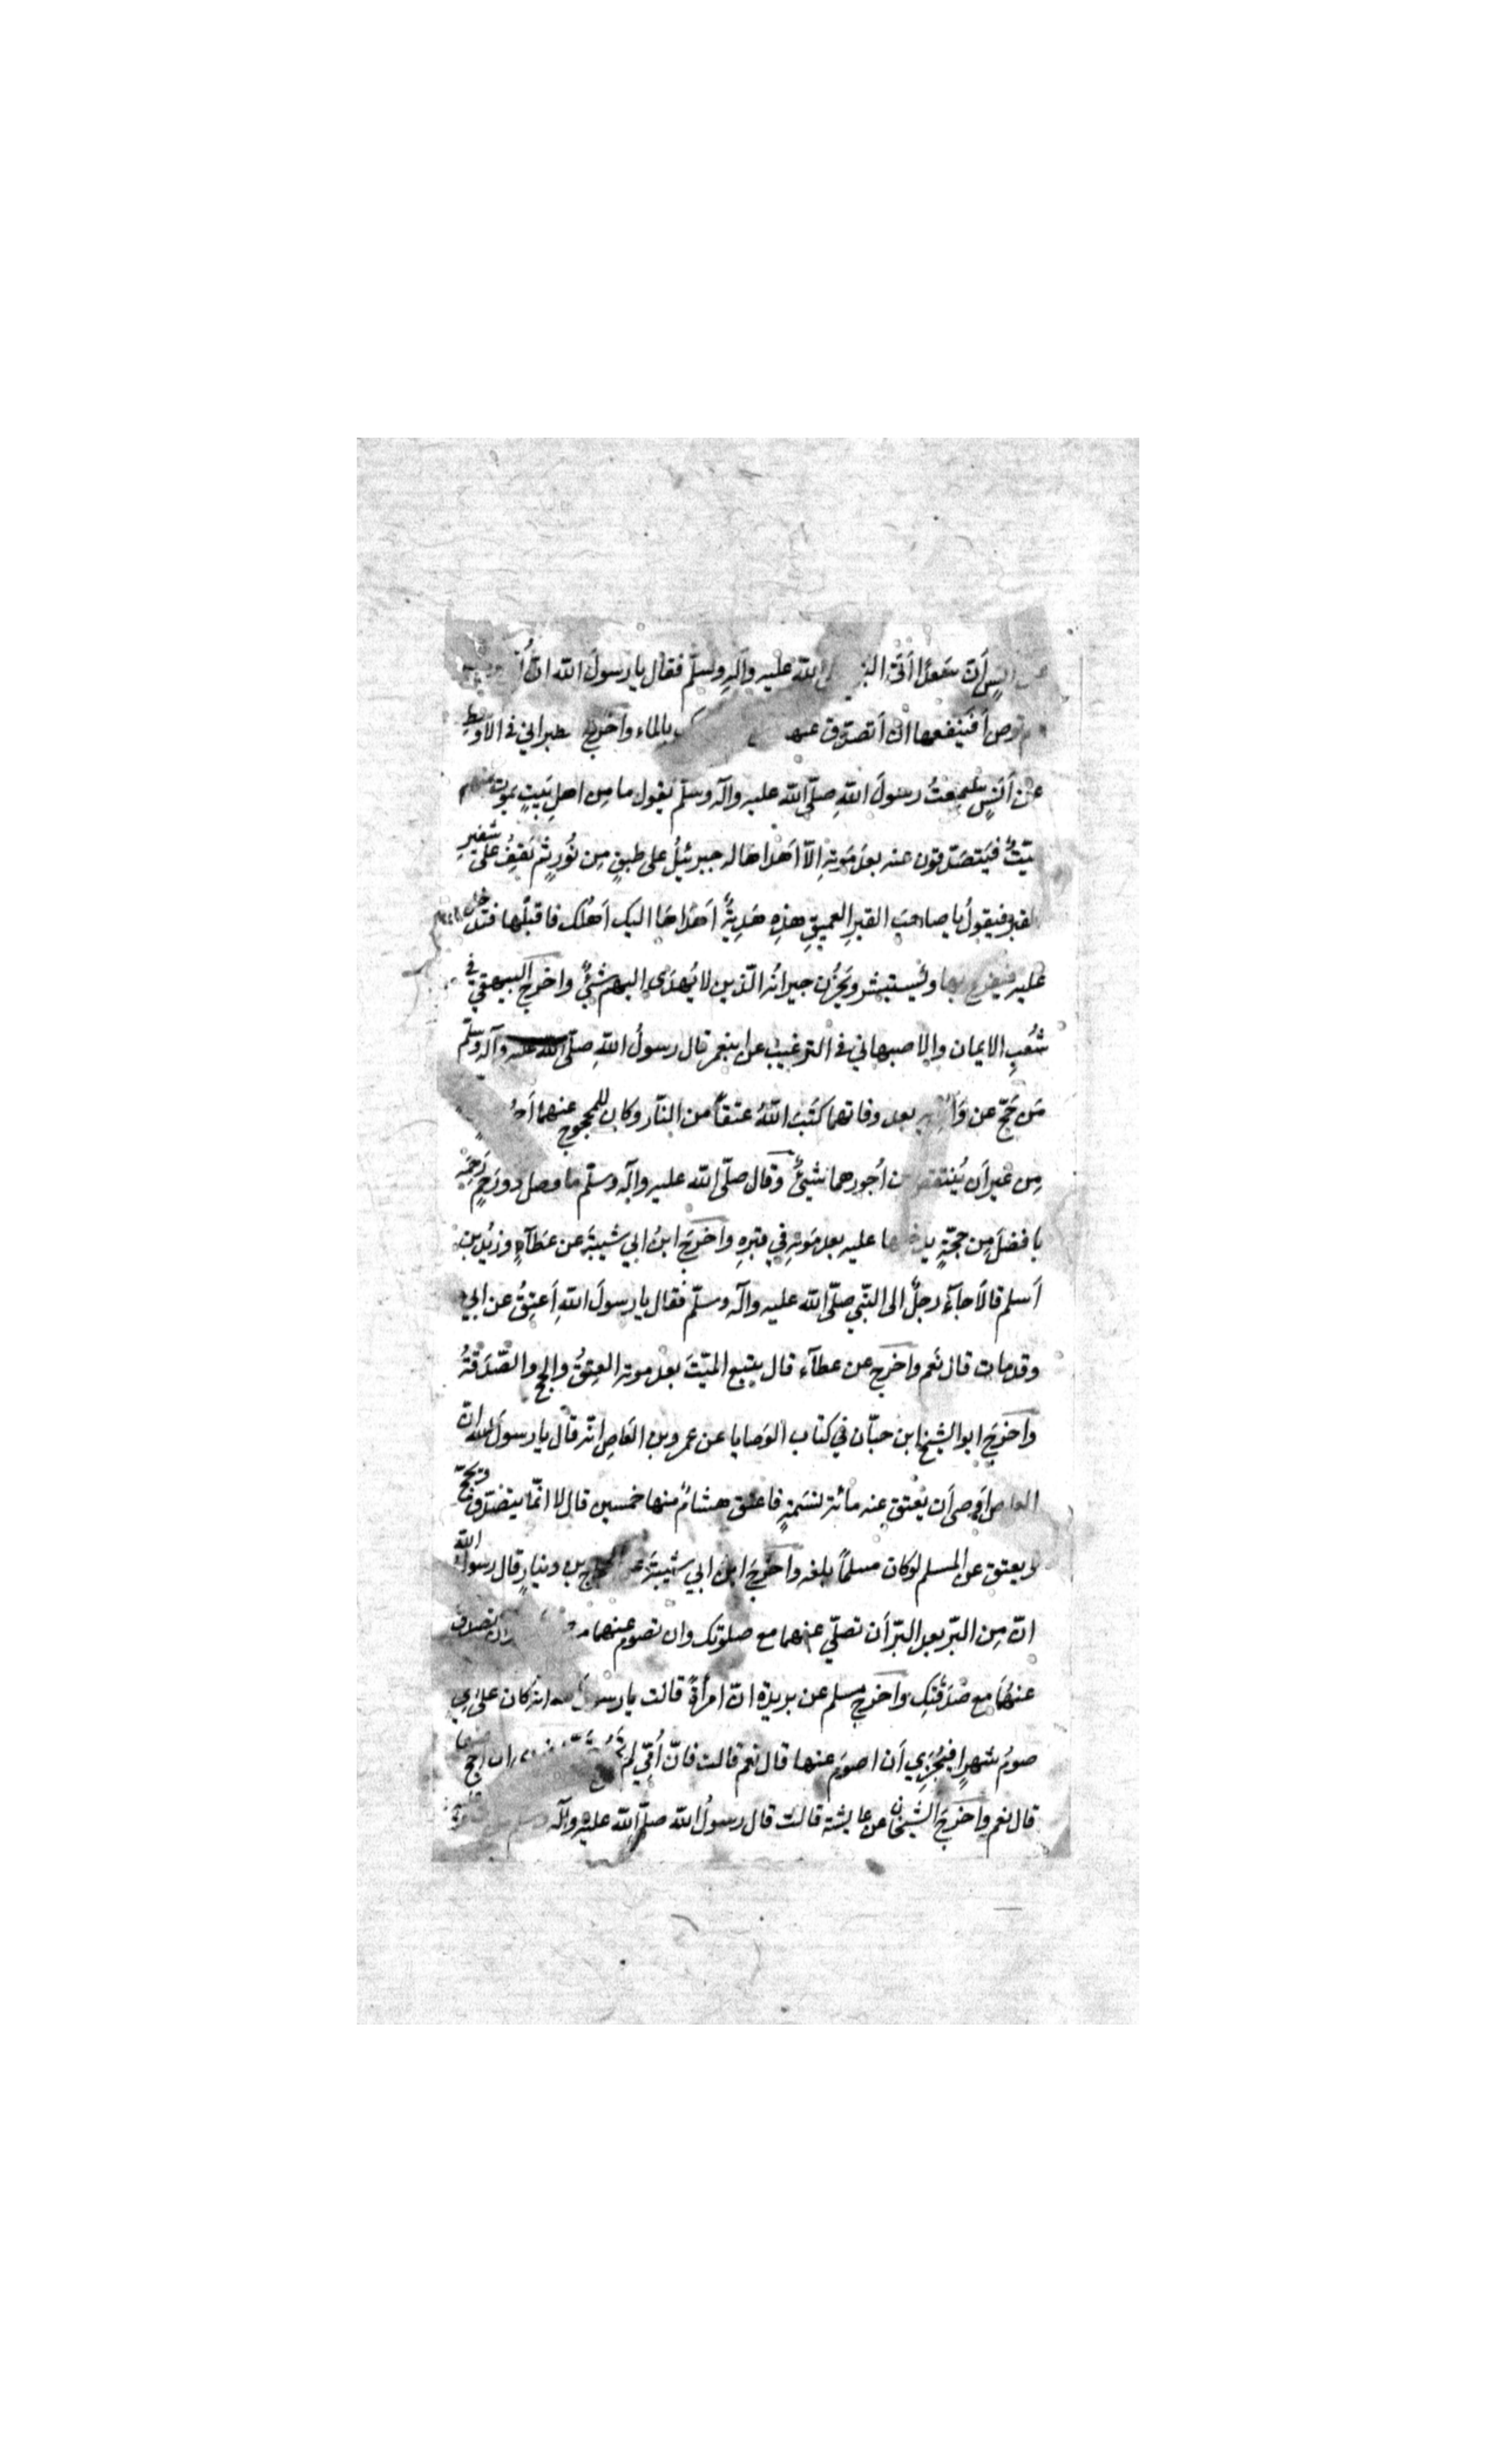 أنسٍ أنّ سَعدًا أتَى النبي صلى الله عليه وآلهِ وسلّم فقال يا رسولَ الله انّ
توص أفَيَنفعها ان أتصدّق عنها بالماء واخرج الطبراني في الاوسط
عن أَنَسٍ سَمِعتُ رسولَ اللهِ صلّى الله عليه وآله وسلّم يقول ما من اهلِ بَيتٍ يموت منهم
ميّتٌ فيَتصَدّقون عنه بعدَ مَوتهِ اِلّا اَهداها له جبرئيلُ على طبقٍ مِن نُورٍ ثم يَقِفُ على شفيرِ
القبر فيقولُ يا صاحبَ القبرِ العميقِ هذِهِ هَدِيةٌ اَهْدَاهَا اليك اَهلُك فاقبَلها فتدخل
عليه فيفرح بها ويَستبشر ويَحزُن جيرانُه الّذين لا يُهدَى اليهم شَيئٌ واخرج البيهقي في
شُعبِ الايمان والاصبهاني في الترغيب عن ابنعمر قال رسولُ اللهِ صلّى الله عليه وآله وسلّم
مَن حَجّ عن وَالديه بعد وفاتهما كَتَبَ اللهُ عتقاً من النّار وكان للمحجوج عنهما
مِن غير اَن يُنتقص من اُجورهما شيئٌ وقال صلّى الله عليه وآله وسلّم ما وصل ذو رَحِمٍ رَحِمَه
بافضلَ مِن حجّةٍ يدخلها عليه بعد مَوتهِ في قبرهِ واخرَجَ ابنُ ابي شيبَةَ عن عَطآءٍ وزيدُ بن
أَسلم قالَا جآءَ رجلٌ الى النّبي صلّى الله عليه وآله وسلّم فقال يا رسولَ اللهِ أَعتِقُ عن ابي
وقد مات قال نَعم واخرج عن عطآء قال يتبع الميّتَ بعد موته العِتقُ والحجّ والصّدَقةُ
واخرجَ ابوالشيخ ابن حبّان في كتاب الوَصايا عن عمرو بن العَاصِ انّه قال يا رسولَ الله انّ
العاص اَوصى اَن يُعتق عنه مائة نسَمةٍ فاعتق هشامٌ منها خمسين قال لا انّما يتصدّق ويحجّ
ويعتق عن المسلم لو كان مسلماً بلغه واخرَجَ ابن ابي شَيبَةَ عن الحجاج بن دينارٍ قال رسول الله
انّ مِن البّر بعد البّر اَن تصلّي عنهما مع صلوتك وان تصوم عنهما وان تصدّق
عنهُمَا مع صَدَقَتِك واخرج مسلم عن بريدة انّ امرأةً قالت يا رسولَ الله انه كان على اُمّي
صومُ شهرٍ افيُجْزِي اَن اصومَ عنها قال نعم قالت فانّ اُمّي لم تحج اَحج عنها
قال نعم واخرَجَ الشيخان عن عايشة قالت قال رسولُ الله صلّى الله عليه وآله وسلم